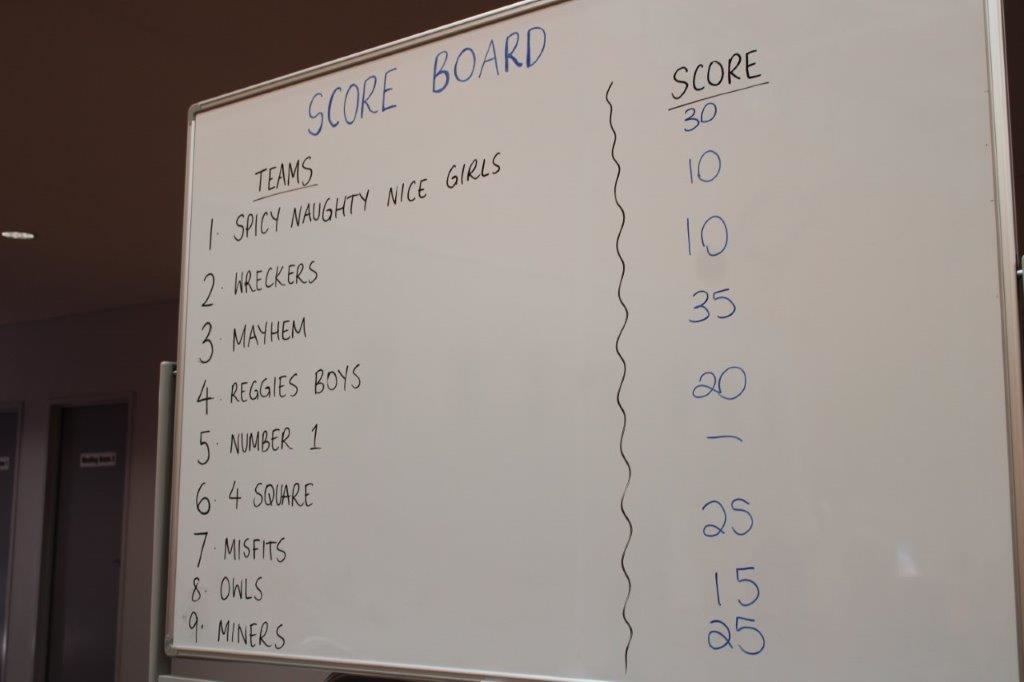 SCORE BOARD
TEAMS
SCORE
1. SPICY NAUGHTY NICE GIRLS 30
2. WRECKERS 10
3. MAYHEM 10
4. REGGIES BOYS 35
5. NUMBER 1 20
6. 4 SQUARE –
7. MISFITS 25
8. OWLS 15
9. MINERS 25